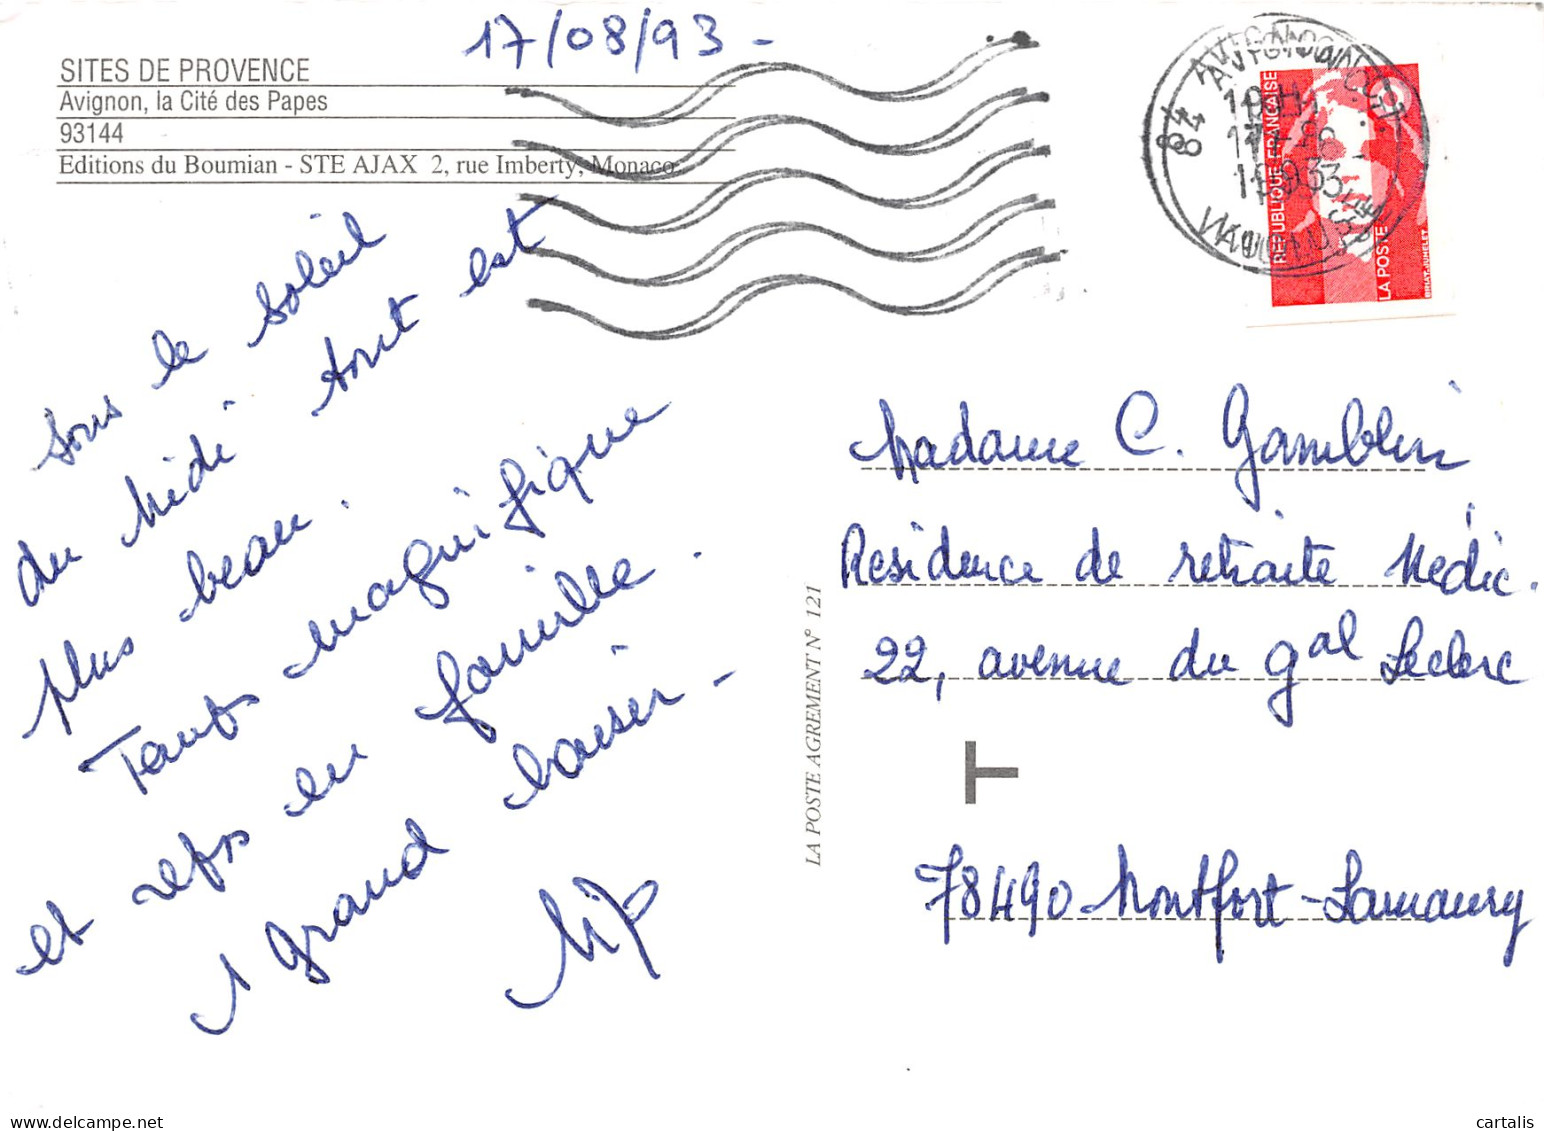 17/08/93 -
SITES DE PROVENCE
Avignon, la Cité des Papes
93144
Editions du Boumian - STE AJAX 2, rue Imberty, Monaco
Sous le soleil
du Midi tout est
plus beau.
Temps magnifique
et repos en famille.
1 grand baiser -
LA POSTE AGREMENT N° 121
84 AVIGNON
VAUCLUSE
REPUBLIQUE FRANÇAISE
LA POSTE
BRIAT-JUMELET
Madame C. Gamblin
Résidence de retraite Médic.
22, avenue du gal Leclerc
T
78490 - Montfort - Lamaury
cartalis